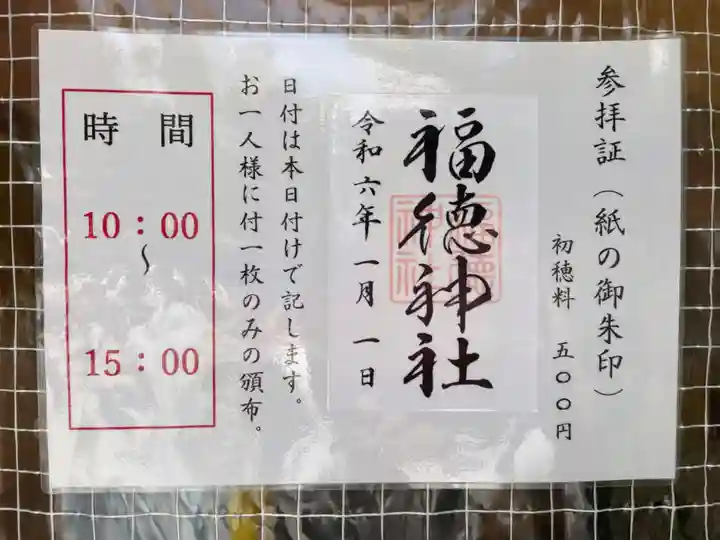 参拝証（紙の御朱印）
初穂料　五〇〇円
福徳神社
令和六年一月一日
日付は本日付けで記します。
お一人様に付一枚のみの頒布。
時　間
10：00
～
15：00